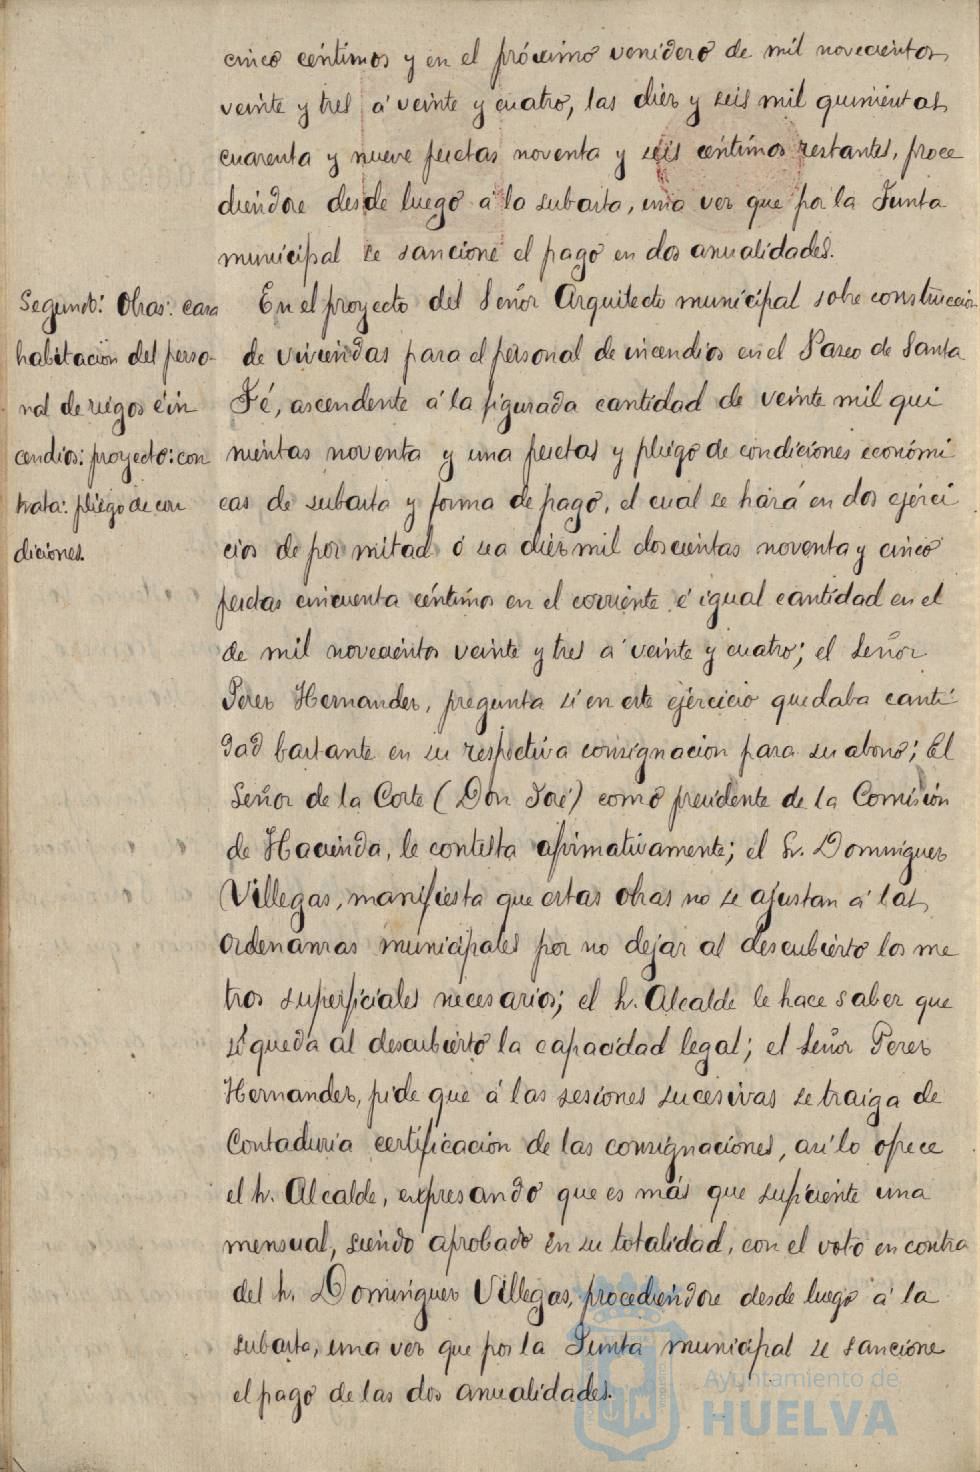 cinco céntimos y en el próximo venidero de mil novecientos
veinte y tres á veinte y cuatro, las diez y seis mil quinientas
cuarenta y nueve pesetas noventa y seis céntimos restantes, proce
diendose desde luego á la subasta, una vez que por la Junta
municipal se sancione el pago en dos anualidades.
Segundo: Obras: casa
habitación del perso-
nal de riegos é in
cendios: proyecto: con
trata: pliego de con
diciones.
En el proyecto del Señor Arquitecto municipal sobre construccion
de viviendas para el personal de incendios en el Paseo de Santa
Fé, ascendente á la figurada cantidad de veinte mil qui
nientas noventa y una pesetas y pliego de condiciones económi
cas de subasta y forma de pago, el cual se hará en dos ejérci
cios de por mitad ó sea diez mil doscientas noventa y cinco
pesetas cincuenta céntimos en el corriente é igual cantidad en el
de mil novecientos veinte y tres á veinte y cuatro; el Señor
Perez Hernandez, pregunta si en este ejercicio quedaba canti
dad bastante en su respectiva consignacion para su abono; El
Señor de la Corte (Don José) como presidente de la Comisión
de Hacienda, le contesta afirmativamente; el Sr. Dominguez
Villegas, manifiesta que estas obras no se ajustan á las
Ordenanzas municipales por no dejar al descubierto los me
tros superficiales necesarios; el Sr. Alcalde le hace saber que
sí queda al descubierto la capacidad legal; el Señor Perez
Hernandez, pide que á las sesiones sucesivas se traiga de
Contaduria certificacion de las consignaciones, asi lo ofrece
el Sr. Alcalde, expresando que es más que suficiente una
mensual, siendo aprobado en su totalidad, con el voto en contra
del Sr. Dominguez Villegas, procediendose desde luego á la
subasta, una vez que por la Junta municipal se sancione
el pago de las dos anualidades.
Ayuntamiento de
HUELVA